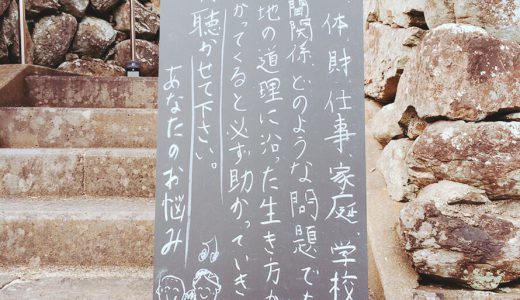 体、財、仕事、家庭、学校
間関係、どのような問題でも
地の道理に沿った生き方が
かってくると必ず助かっていき
聴かせて下さい。
あなたのお悩み